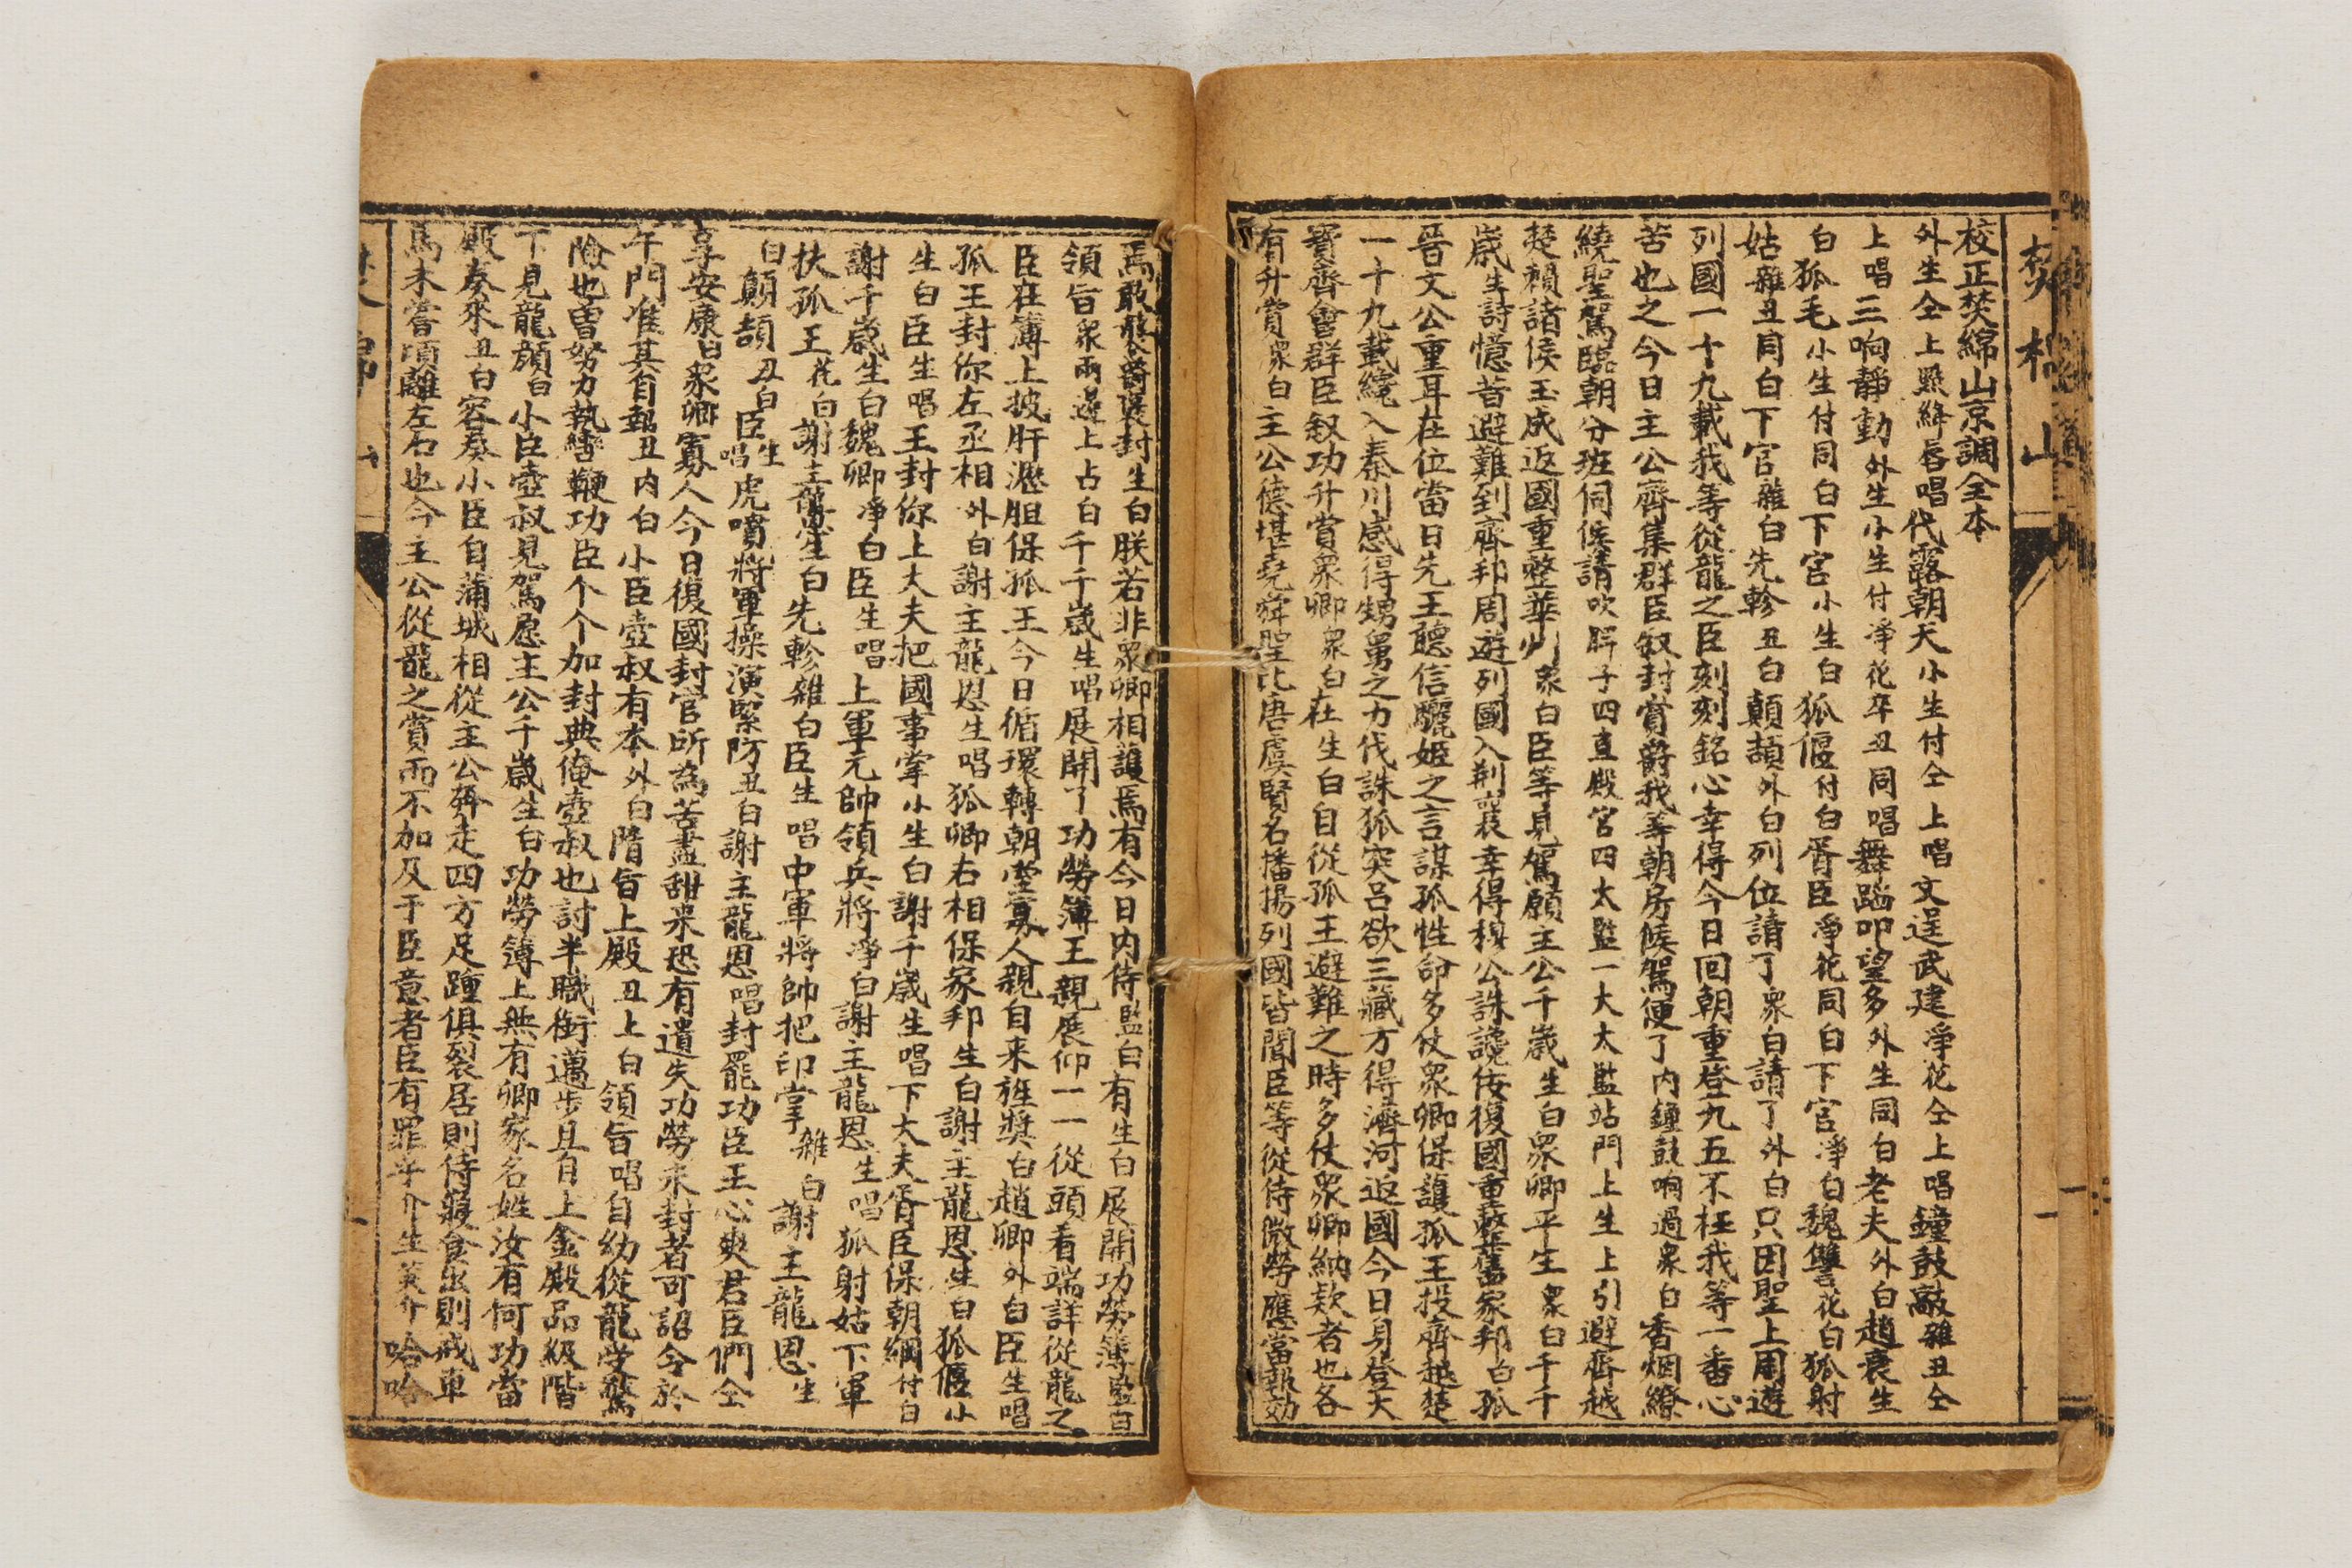 焚棉山
校正焚綿山京調全本
外生仝上點絳唇唱代露朝天小生付仝上唱文逞武建凈花仝上唱鐘鼓敲雜丑仝
上唱三响靜動外生小生付凈花卒丑同唱舞蹈叩望多外生同白老夫外白趙衰生
白狐毛小生付同白下官小生白狐偃付白胥臣凈花同白下官凈白魏犨花白狐射
姑雜丑同白下官雜白先軫丑白顛頡外白列位請了衆白請了外白只因聖上周遊
列國一十九載我等從龍之臣刻刻銘心幸得今日回朝重登九五不枉我等一番心
苦也之今日主公齊集群臣叙封賞爵我等朝房候駕便了内鐘鼓响過衆白香烟繚
繞聖駕臨朝分班伺候請吹牌子四直殿官四太監一大太監站門上生上引避齊越
楚賴諸侯玉成返國重整華州衆白臣等見駕願主公千歲生白衆卿平生衆白千千
歲生詩憶昔避難到齊邦周遊列國入荆襄幸得穆公誅讒佞復國重整舊家邦白孤
晉文公重耳在位當日先王聽信驪姬之言謀孤性命多仗衆卿保護孤王投齊越楚
一十九載纔入秦川感得甥舅之力代誅狐突呂欲三藏方得濟河返國今日身登大
寶齊會群臣叙功升賞衆卿衆白在生白自從孤王避難之時多仗衆卿納欵者也各
有升賞衆白主公德堪堯舜聖比唐虞賢名播揚列國皆聞臣等從侍微勞應當報効
焉敢蒙爵選封生白朕若非衆卿相護焉有今日内侍監白有生白展開功勞簿監白
領旨衆兩邊上占白千千歲生唱展開了功勞簿王親展仰一一從頭看端詳從龍之
臣在簿上披肝瀝胆保孤王今日循環轉朝堂寡人親自来旌獎白趙卿外白臣生唱
孤王封你左丞相外白謝主龍恩生唱狐卿右相保家邦生白謝主龍恩生白狐偃小
生白臣生唱王封你上大夫把國事掌小生白謝千歲生唱下大夫胥臣保朝綱付白
謝千歲生白魏卿凈白臣生唱上軍元帥領兵將凈白謝主龍恩生唱狐射姑下軍
扶孤王花白謝主龍恩生白先軫雜白臣生唱中軍將帥把印掌雜白謝主龍恩生
白顛頡丑白臣生唱虎噴將軍操演緊防丑白謝主龍恩唱封罷功臣王心爽君臣們仝
享安康白衆卿寡人今日復國封官所為苦盡甜来恐有遺失功勞未封者可詔令於
午門准其自報丑内白小臣壺叔有本外白隋旨上殿丑上白領旨唱自幼從龍学駕
險也曾努力執轡鞭功臣个个加封典俺壺叔也討半職銜邁步且自上金殿品級階
下見龍顔白小臣壺叔見駕愿主公千歲生白功勞簿上無有卿家名姓汝有何功當
殿奏來丑白容奏小臣自蒲城相從主公奔走四方足踵俱裂居則侍寢食出則戒車
馬未嘗頃離左右也今主公從龍之賞而不加及于臣意者臣有罪乎介生笑介哈哈